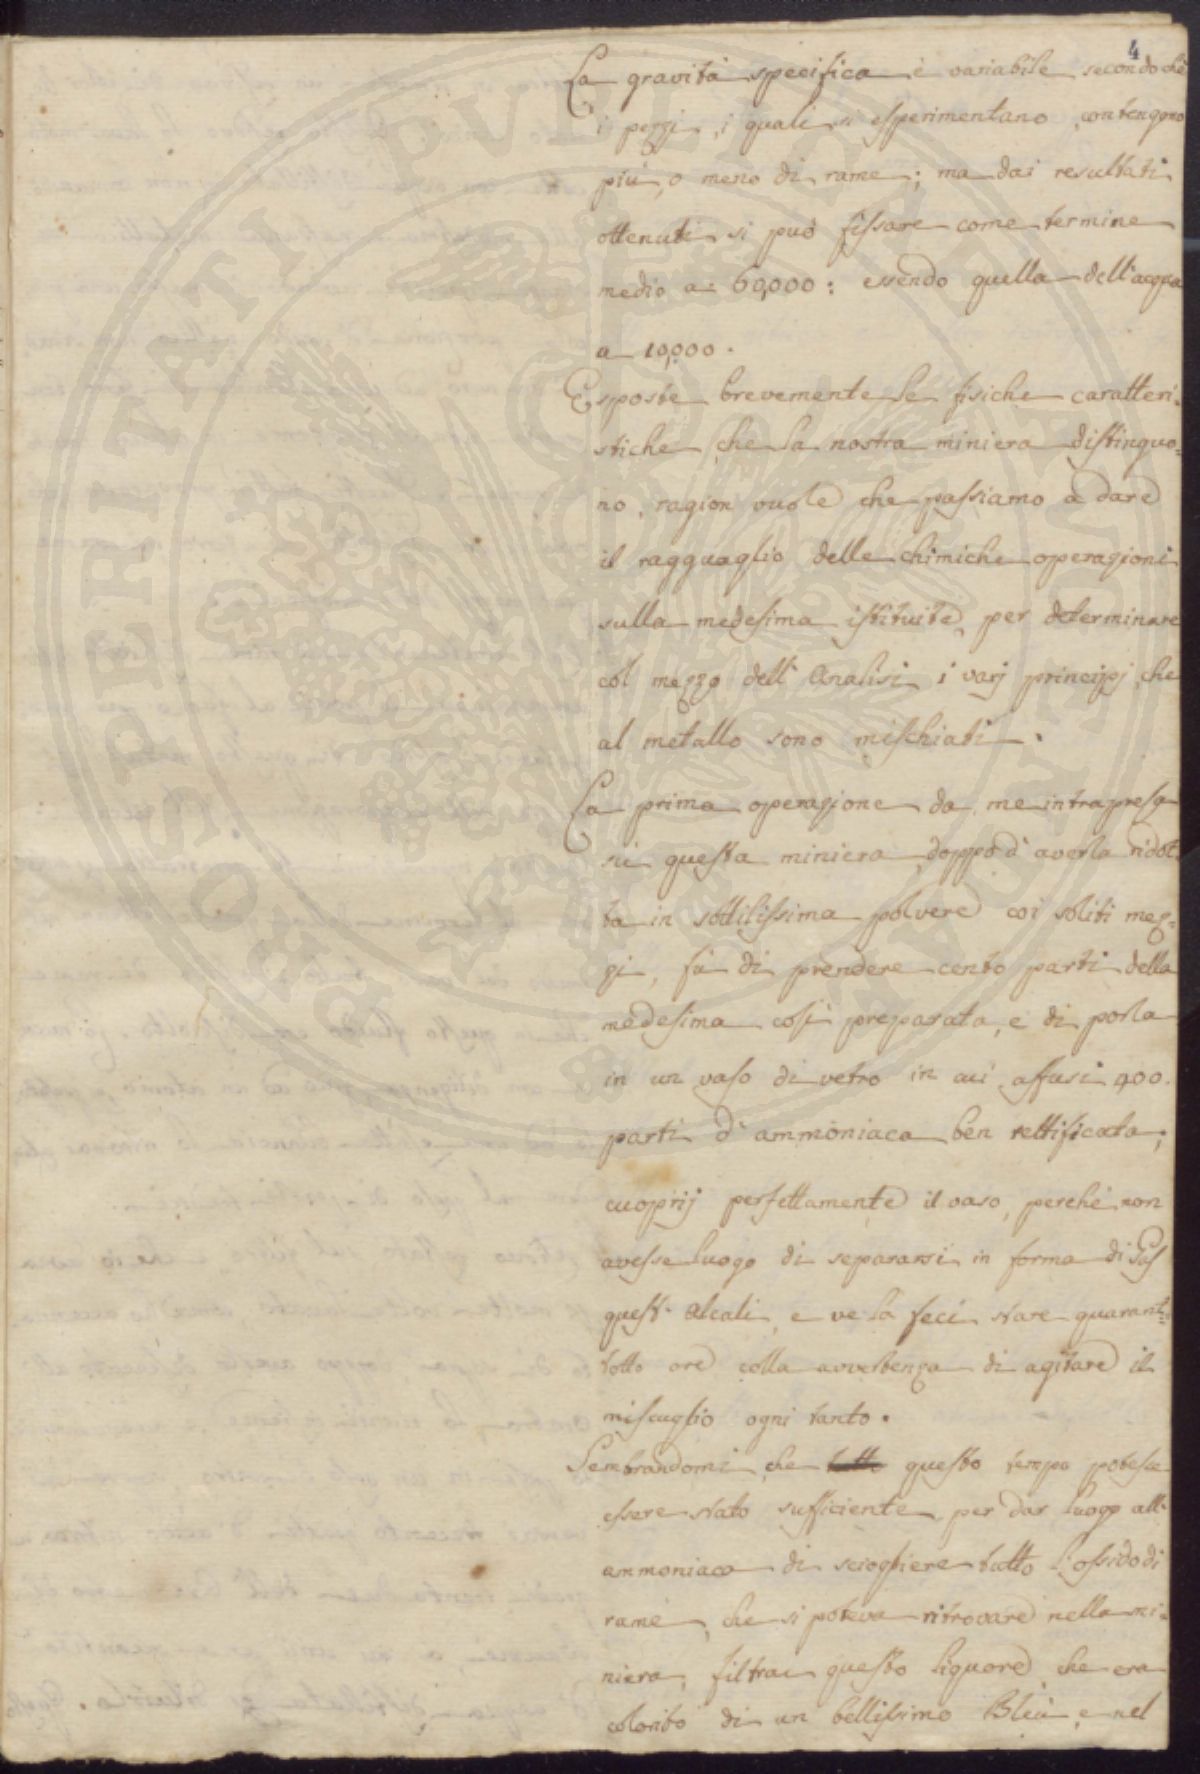 4
La gravità specifica è variabile secondochè
i pezzi, i quali si esperimentano contengono
più, o meno di rame; ma dai resultati
ottenuti si può fissare come termine
medio a 60,000: essendo quella dell'acqua
a 10,000.
Esposte brevemente le fisiche caratteri-
stiche che la nostra miniera distinguo-
no, ragion vuole che passiamo a dare
il ragguaglio delle chimiche operazioni
sulla medesima istituite, per determinare
col mezzo dell'Analisi i varj principj che
al metallo sono mischiati.
La prima operazione da me intrapresa
su questa miniera, doppo d'averla ridot-
ta in sottilissima polvere coi soliti mez-
zi, fù di prendere cento parti della
medesima così preparata, e di porla
in un vaso di vetro in cui affusi 400.
parti d'ammoniaca ben rettificata;
cuoprij perfettamente il vaso, perchè non
avesse luogo di separarsi in forma di Gas
quest'Alcali, e ve la feci stare quarant-
totto ore colla avvertenza di agitare il
miscuglio ogni tanto.
Sembrandomi che tutto questo tempo potesse
essere stato sufficiente per dar luogo all'
ammoniaca di sciogliere tutto l'ossido di
rame, che si poteva ritrovare nella mi-
niera, filtrai questo liquore che era
colorito di un bellissimo Bleù, e nel
PROSPERITATI PVBLICAE